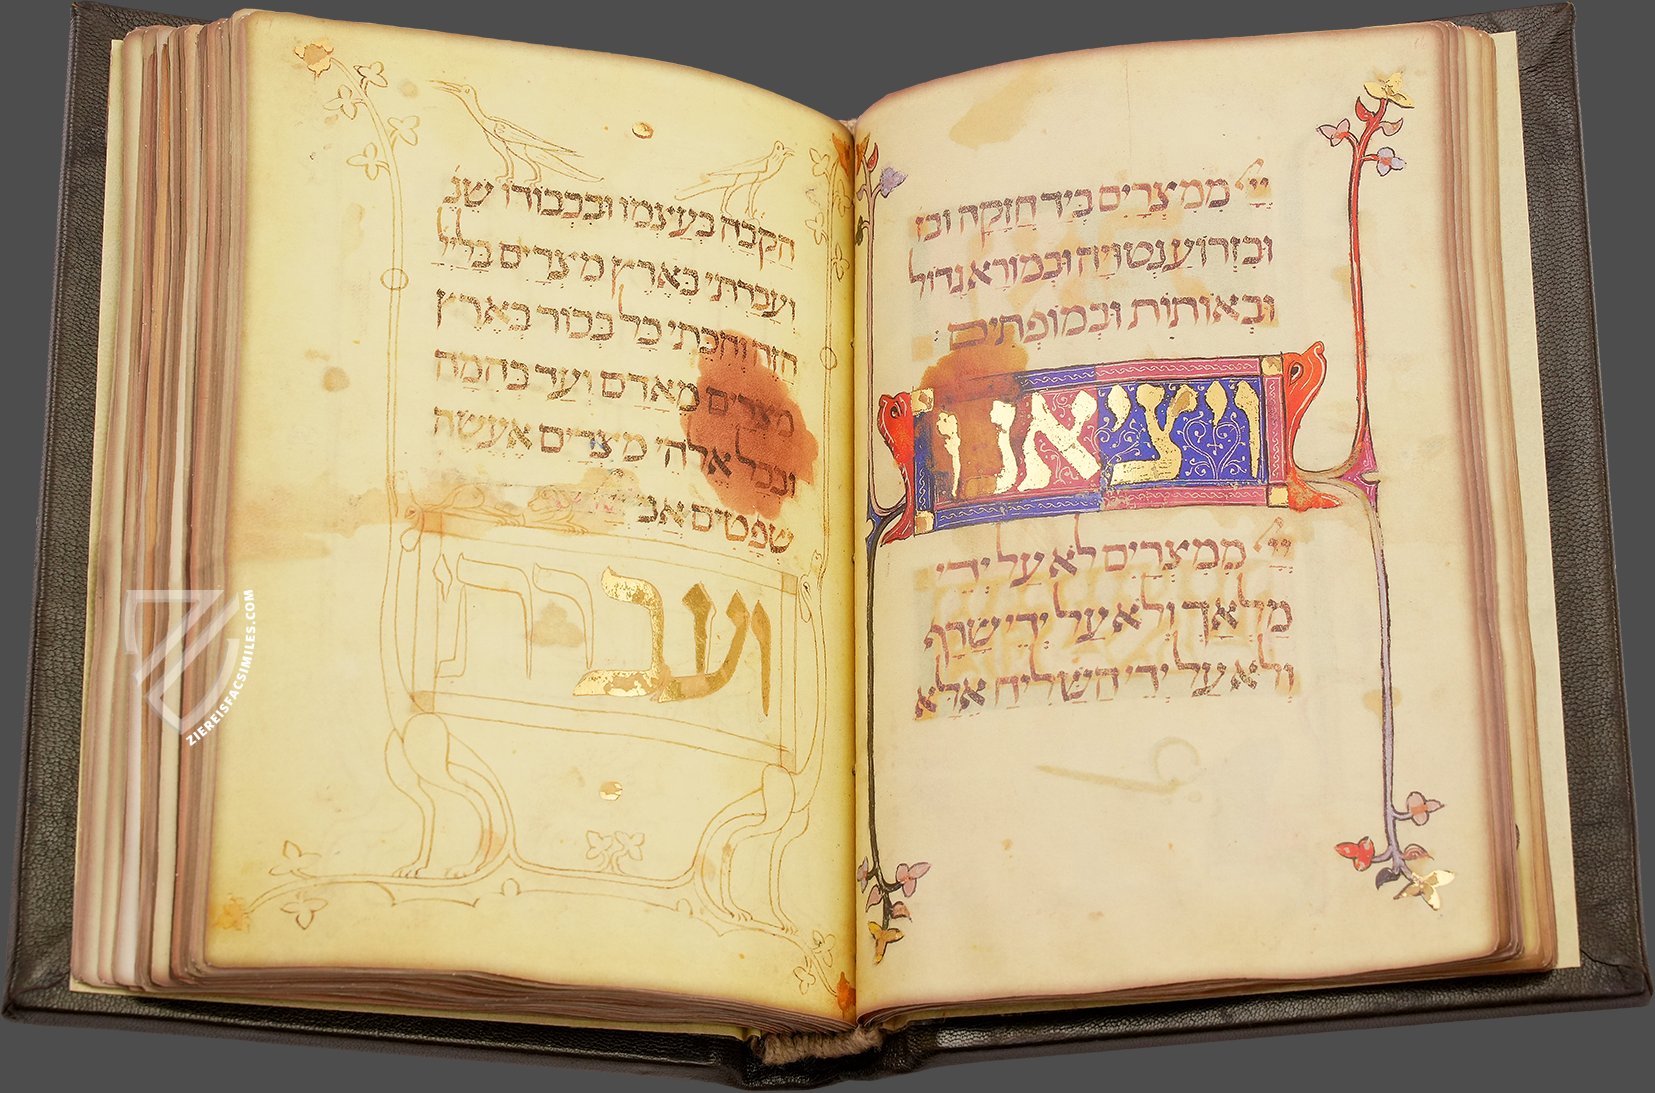 יי׳ ממצרים ביד חזקה ובז
ובזרוע נטויה ובמורא גדול
ובאותות ובמופתים :
ויציאנו
יי׳ ממצרים לא על ידי
מלאך ולא על ידי שרף
ולא על ידי השליח אלא
הקבה בעצמו ובכבודו שנ
ועברתי בארץ מצרים בליל
הזה והכתי כל בכור בארץ
מצרים מאדם ועד בהמה
ובכל אלהי מצרים אעשה
שפטים אני
ועברתי
ZIEREISFACSIMILES.COM